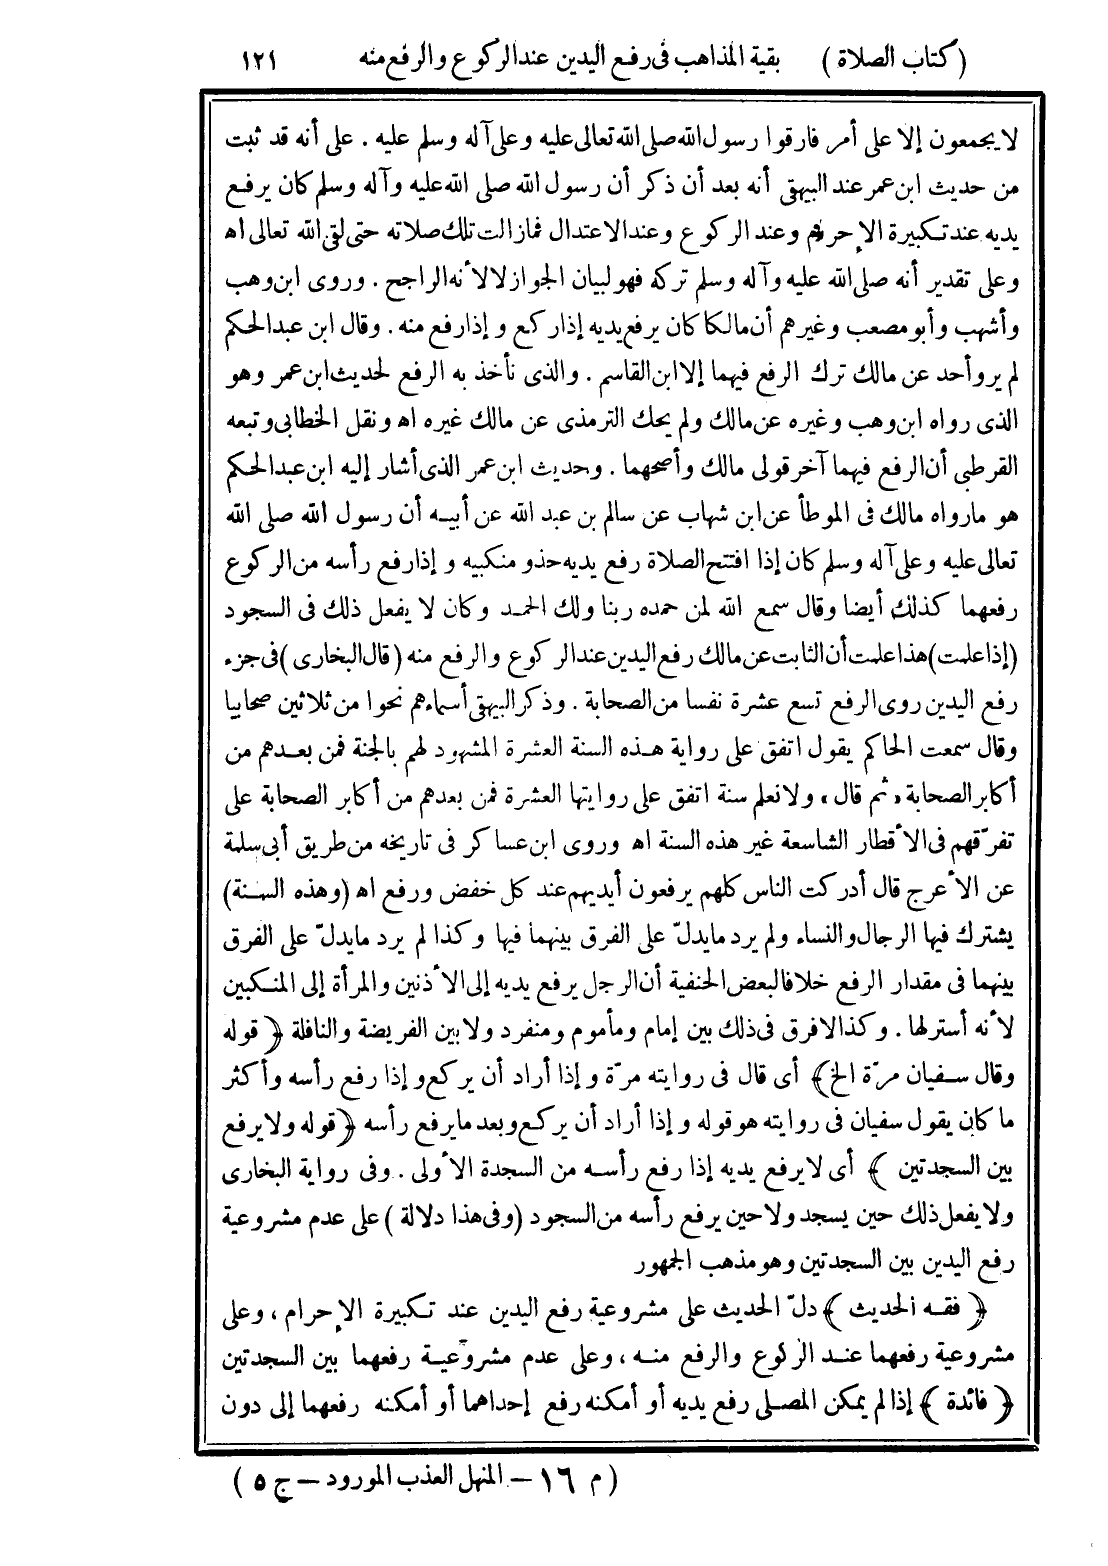 (كتاب الصلاة) بقية المذاهب فى رفع اليدين عند الركوع والرفع منه ١٢١
لا يجمعون إلا على أمر فارقوا رسول الله صلى الله تعالى عليه وعلى آله وسلم عليه . على أنه قد ثبت
من حديث ابن عمر عند البيهقى أنه بعد أن ذكر أن رسول الله صلى الله عليه وآله وسلم كان يرفع
يديه عند تكبيرة الإحرام وعند الركوع وعند الاعتدال فمازالت تلك صلاته حتى لقى الله تعالى اه
وعلى تقدير أنه صلى الله عليه وآله وسلم تركه فهو لبيان الجواز لا لأنه الراجح . وروى ابن وهب
وأشهب وأبو مصعب وغيرهم أن مالكا كان يرفع يديه إذا ركع وإذا رفع منه . وقال ابن عبد الحكم
لم يرو أحد عن مالك ترك الرفع فيهما إلا ابن القاسم . والذى نأخذ به الرفع لحديث ابن عمر وهو
الذى رواه ابن وهب وغيره عن مالك ولم يحك الترمذى عن مالك غيره اه ونقل الخطابى وتبعه
القرطبى أن الرفع فيهما آخر قولى مالك وأصحهما . وحديث ابن عمر الذى أشار إليه ابن عبد الحكم
هو مارواه مالك فى الموطأ عن ابن شهاب عن سالم بن عبد الله عن أبيه أن رسول الله صلى الله
تعالى عليه وعلى آله وسلم كان إذا افتتح الصلاة رفع يديه حذو منكبيه وإذا رفع رأسه من الركوع
رفعهما كذلك أيضا وقال سمع الله لمن حمده ربنا ولك الحمد وكان لا يفعل ذلك فى السجود
(إذا علمت) هذا علمت أن الثابت عن مالك رفع اليدين عند الركوع والرفع منه (قال البخارى) فى جزء
رفع اليدين روى الرفع تسع عشرة نفسا من الصحابة . وذكر البيهقى أسماءهم نحوا من ثلاثين صحابيا
وقال سمعت الحاكم يقول اتفق على رواية هذه السنة العشرة المشهود لهم بالجنة فمن بعدهم من
أكابر الصحابة «ثم قال» ولا نعلم سنة اتفق على روايتها العشرة فمن بعدهم من أكابر الصحابة على
تفرّقهم فى الأقطار الشاسعة غير هذه السنة اه وروى ابن عساكر فى تاريخه من طريق أبى سلمة
عن الأعرج قال أدركت الناس كلهم يرفعون أيديهم عند كل خفض ورفع اه (وهذه السنة)
يشترك فيها الرجال والنساء ولم يرد مايدلّ على الفرق بينهما فيها وكذا لم يرد مايدلّ على الفرق
بينهما فى مقدار الرفع خلافا لبعض الحنفية أن الرجل يرفع يديه إلى الأذنين والمرأة إلى المنكبين
لأنه أستر لها . وكذا لافرق فى ذلك بين إمام ومأموم ومنفرد ولا بين الفريضة والنافلة ﴿قوله
وقال سفيان مرّة الخ﴾ أى قال فى روايته مرّة وإذا أراد أن يركع وإذا رفع رأسه وأكثر
ما كان يقول سفيان فى روايته هو قوله وإذا أراد أن يركع وبعد مايرفع رأسه ﴿قوله ولا يرفع
بين السجدتين﴾ أى لا يرفع يديه إذا رفع رأسه من السجدة الأولى . وفى رواية البخارى
ولا يفعل ذلك حين يسجد ولا حين يرفع رأسه من السجود (وفى هذا دلالة) على عدم مشروعية
رفع اليدين بين السجدتين وهو مذهب الجمهور
﴿فقه الحديث﴾ دلّ الحديث على مشروعية رفع اليدين عند تكبيرة الإحرام، وعلى
مشروعية رفعهما عند الركوع والرفع منه، وعلى عدم مشروعية رفعهما بين السجدتين
﴿فائدة﴾ إذا لم يمكن المصلى رفع يديه أو أمكنه رفع إحداهما أو أمكنه رفعهما إلى دون
(م ١٦ – المنهل العذب المورود – ج ٥)